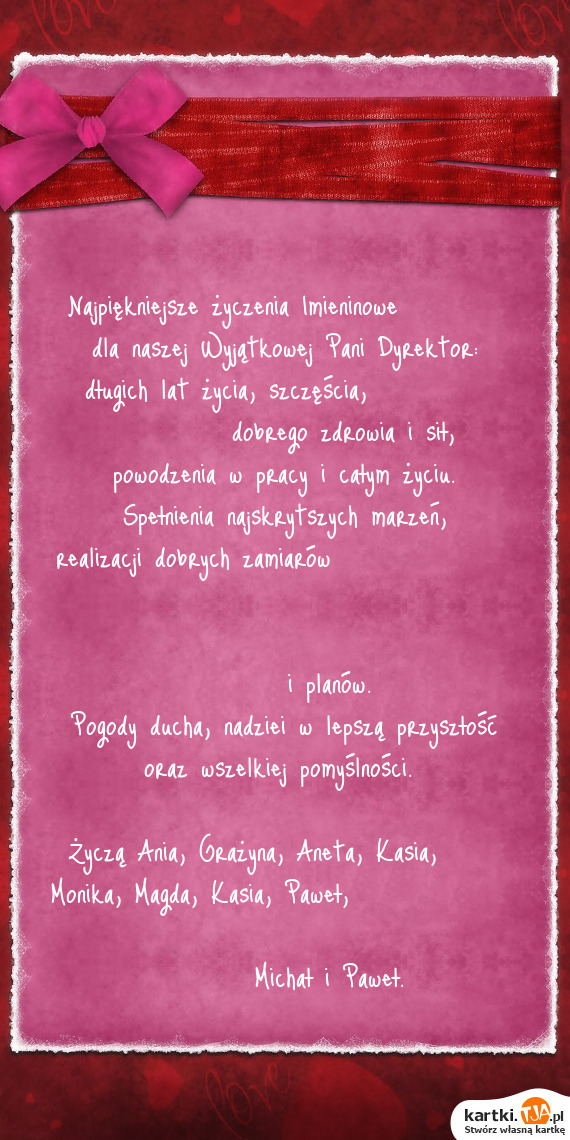 love
love
Najpiękniejsze życzenia Imieninowe
dla naszej Wyjątkowej Pani Dyrektor:
długich lat życia, szczęścia,
dobrego zdrowia i sił,
powodzenia w pracy i całym życiu.
Spełnienia najskrytszych marzeń,
realizacji dobrych zamiarów
i planów.
Pogody ducha, nadziei w lepszą przyszłość
oraz wszelkiej pomyślności.
Życzą Ania, Grażyna, Aneta, Kasia,
Monika, Magda, Kasia, Paweł,
Michał i Paweł.
love
kartki.TJA.pl
Stwórz własną kartkę